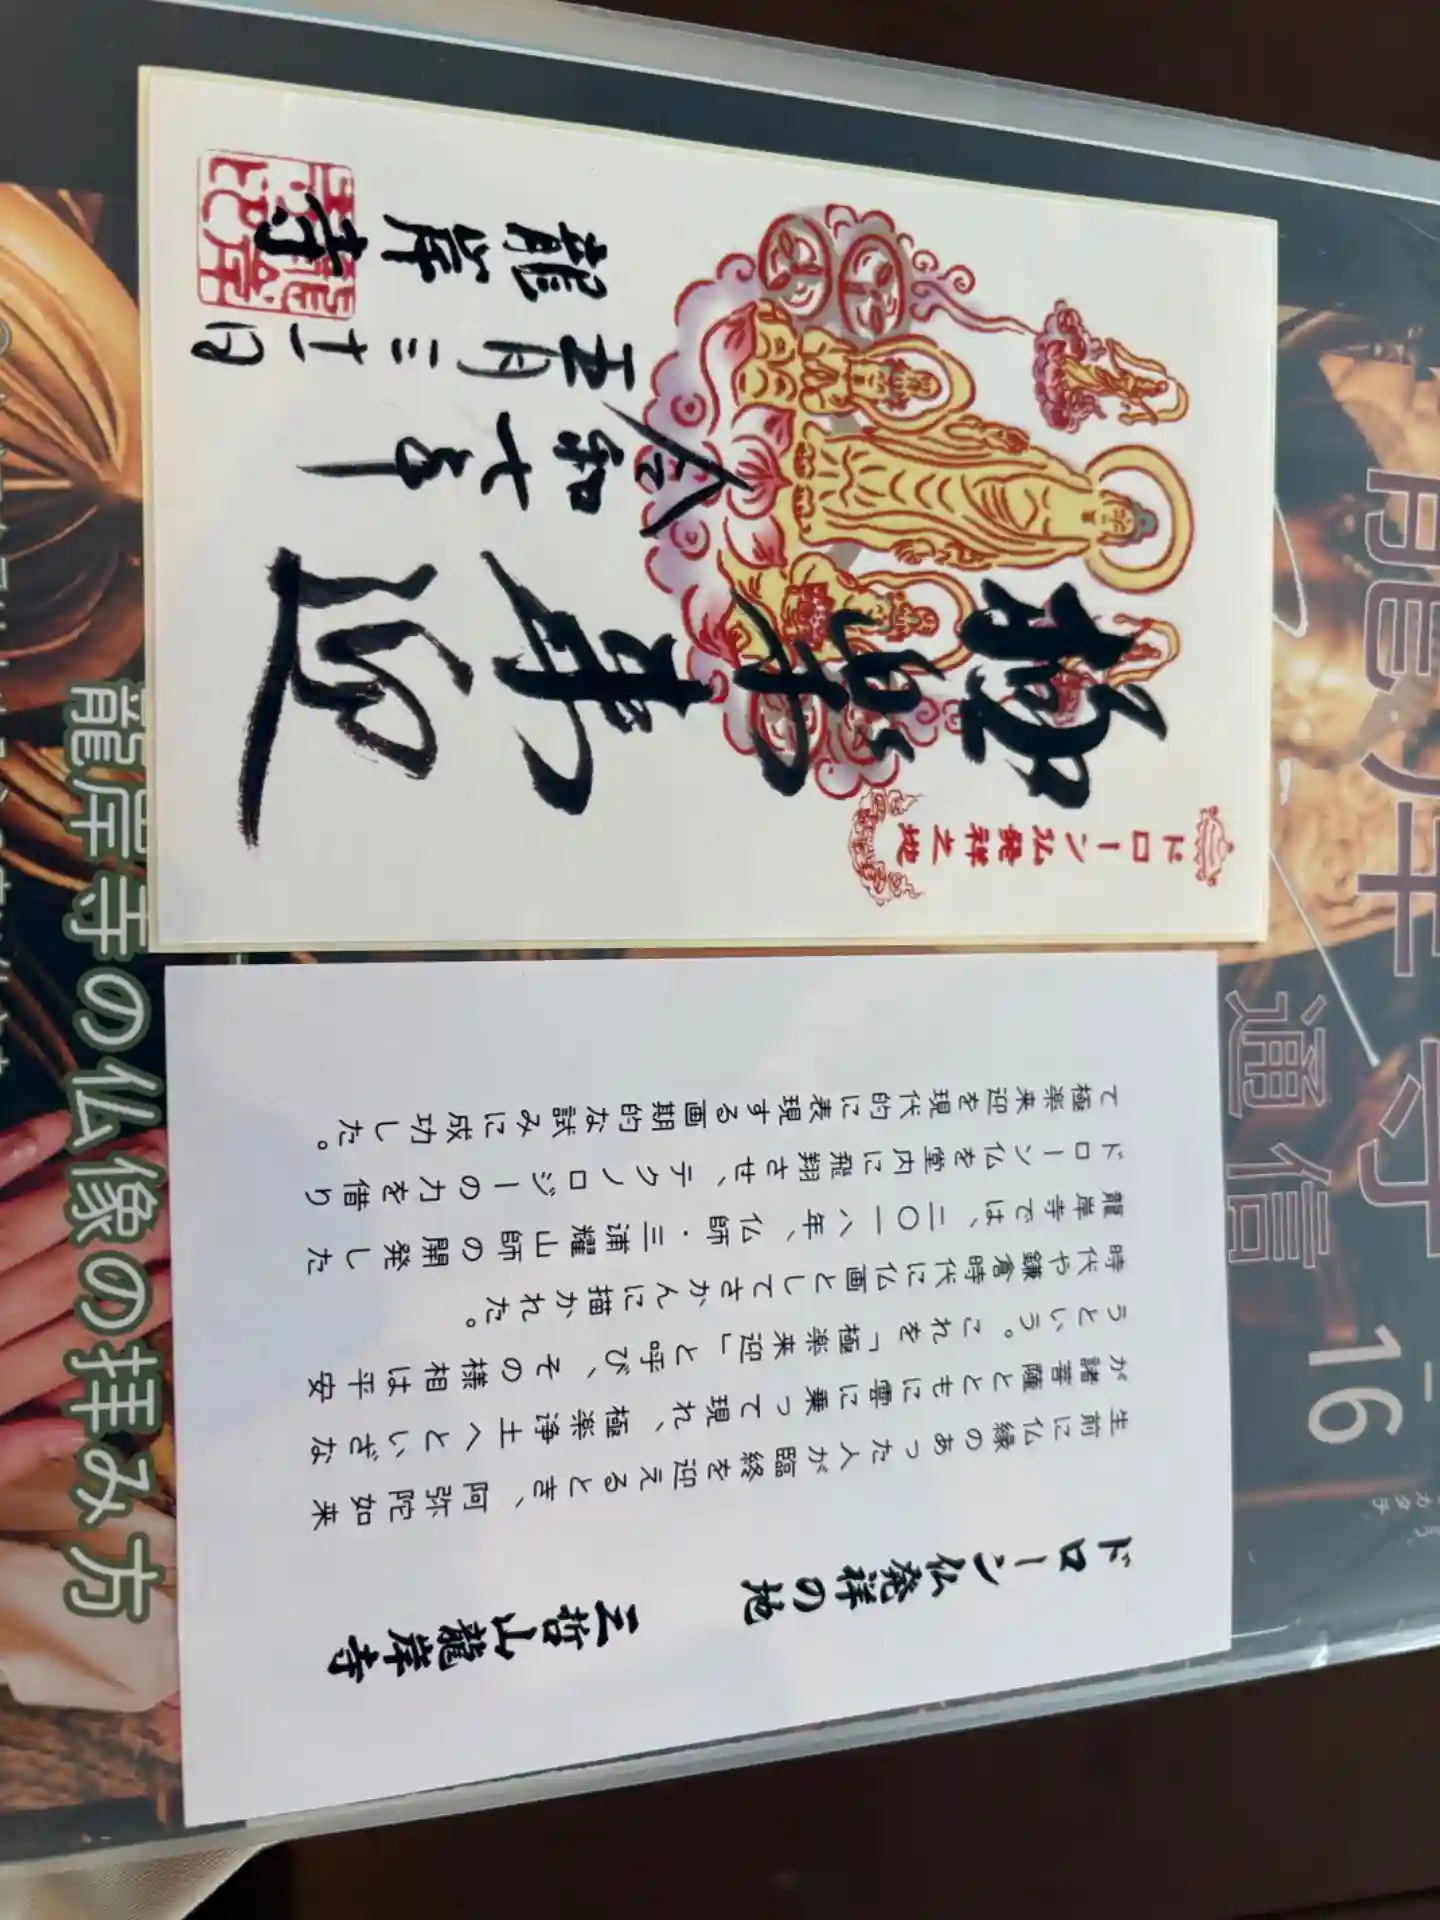 ドローン仏発祥之地
極楽来迎
令和七年
五月三十一日
龍岸寺
ドローン仏発祥の地
三哲山龍岸寺
生前に仏縁のあった人が臨終を迎えるとき、阿弥陀如来
が諸菩薩とともに雲に乗って現れ、極楽浄土へといざな
うという。これを「極楽来迎」と呼び、その様相は平安
時代や鎌倉時代に仏画としてさかんに描かれた。
龍岸寺では、二〇一八年、仏師・三浦耀山師の開発した
ドローン仏を堂内に飛翔させ、テクノロジーの力を借り
て極楽来迎を現代的に表現する画期的な試みに成功した。
龍岸寺
通信
16
龍岸寺の仏像の拝み方